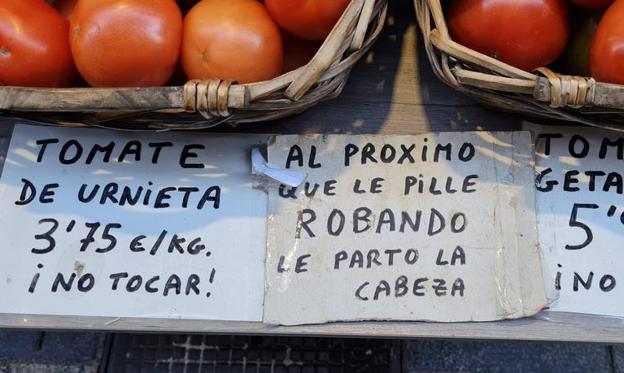 TOMATE
DE URNIETA
3'75 €/KG.
¡NO TOCAR!
AL PROXIMO
QUE LE PILLE
ROBANDO
LE PARTO LA
CABEZA
TOM
GETA
5'
¡NO